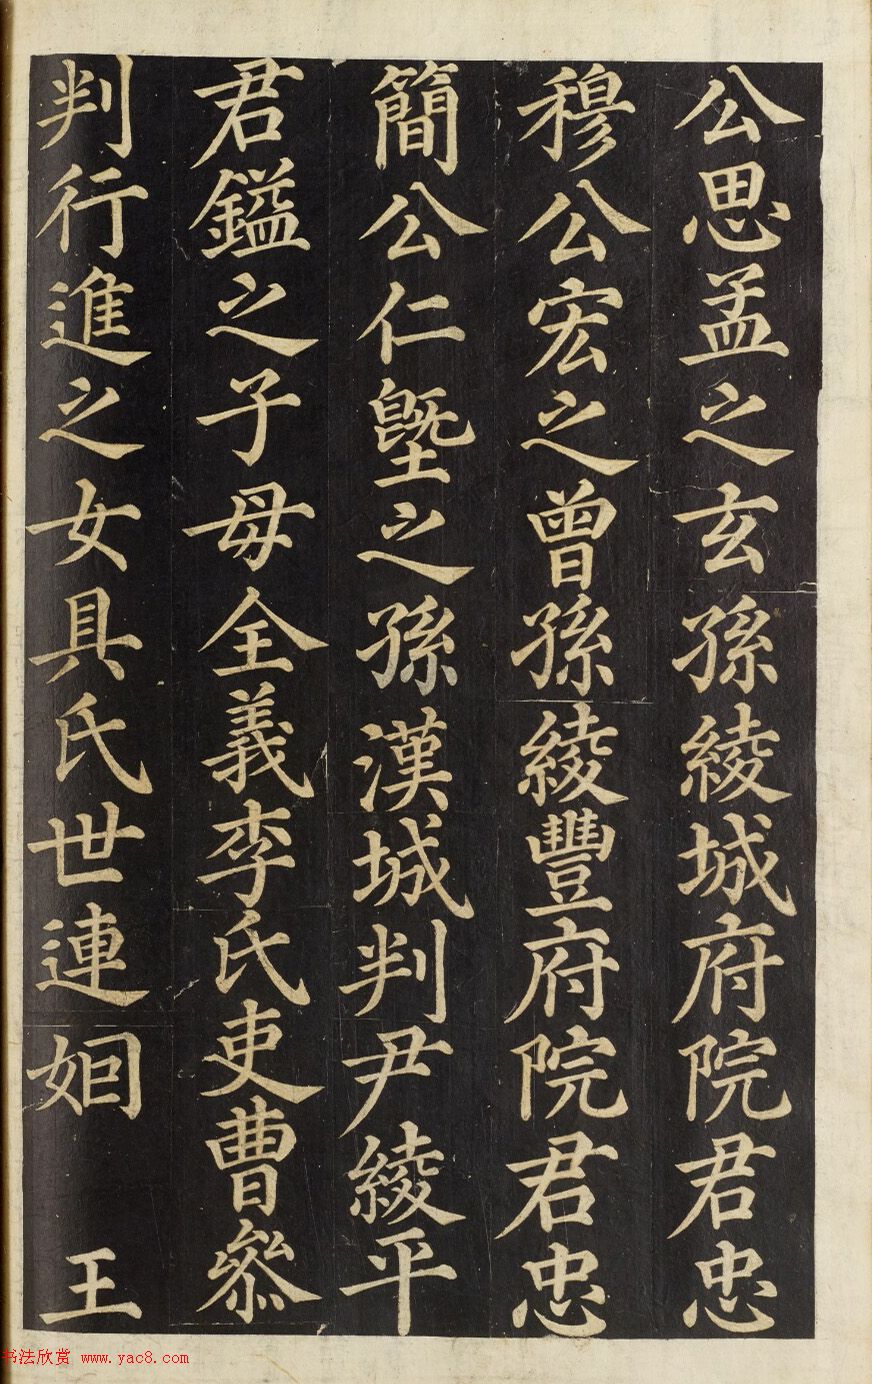 公思孟之玄孫綾城府院君忠
穆公宏之曾孫綾豐府院君忠
簡公仁塈之孫漢城判尹綾平
君鎰之子母全義李氏吏曹參
判行進之女具氏世連姻王
书法欣赏 www.yac8.com